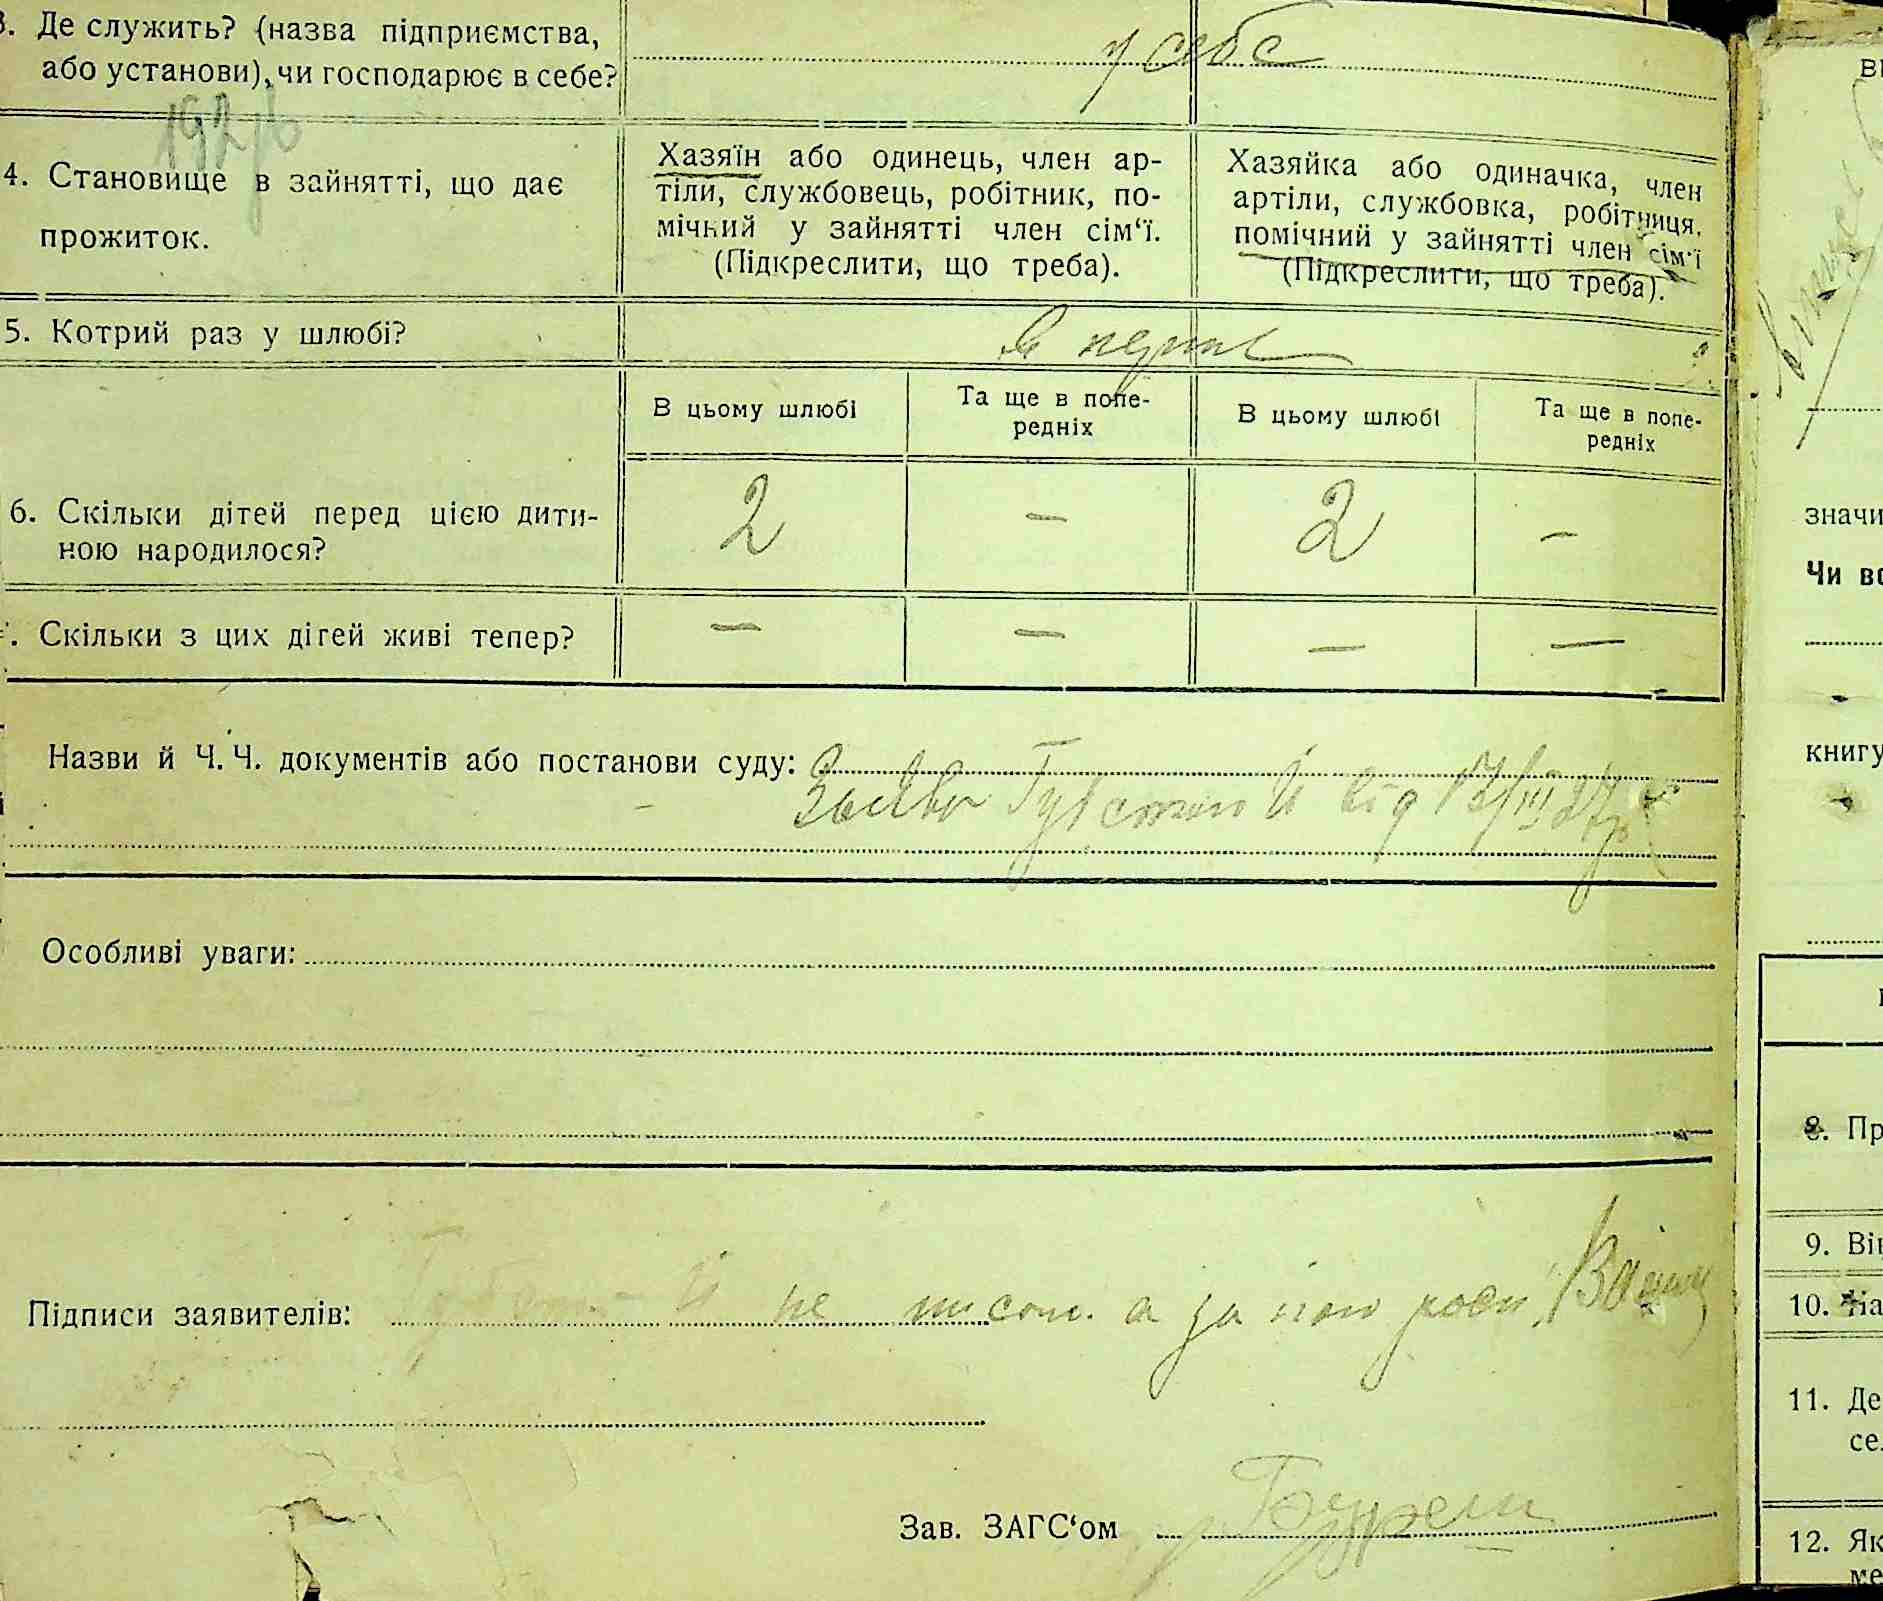 3. Де служить? (назва підприємства,
або установи), чи господарює в себе?
у себе
4. Становище в зайнятті, що дає
прожиток.
Хазяїн або одинець, член ар-
тіли, службовець, робітник, по-
мічний у зайнятті член сім‘ї.
(Підкреслити, що треба).
Хазяйка або одиначка, член
артіли, службовка, робітниця.
помічний у зайнятті член сім‘ї
(Підкреслити, що треба).
5. Котрий раз у шлюбі?
В цьому шлюбі
Та ще в попе-
редніх
В цьому шлюбі
Та ще в попе-
редніх
6. Скільки дітей перед цією дити-
ною народилося?
2 — 2 —
. Скільки з цих дітей живі тепер?
— — — —
Назви й Ч. Ч. документів або постанови суду:
від 12/III 27р
Особливі уваги:
Підписи заявителів:
не письм. а за його
Зав. ЗАГС‘ом
значи
Чи вс
книгу
8. Пр
9. Ві
10. На
11. Де
се
12. Як
ме